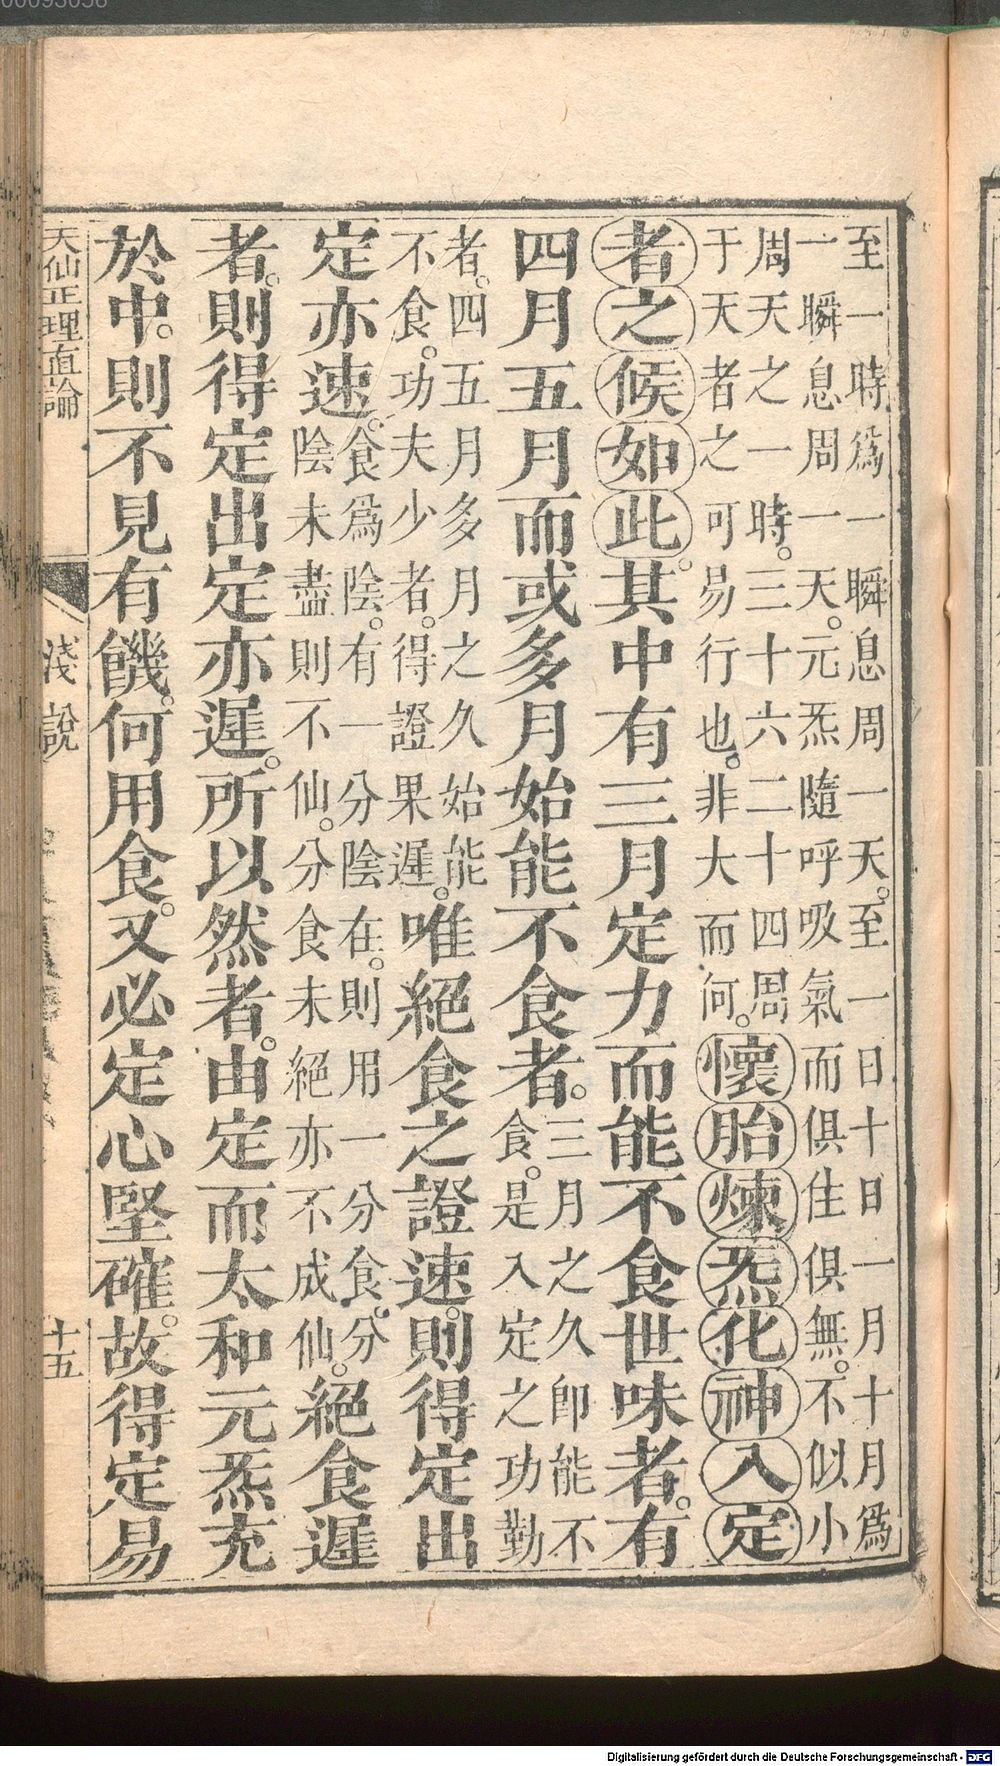 至一時爲一瞬息周一天。至一日十日一月十月爲
一瞬息周一天。元炁隨呼吸氣而俱住俱無。不似小
周天之一時。三十六二十四周
于天者之可易行也。非大而何。
懷胎煉炁化神入定
者之候如此。其中有三月定力而能不食世味者。有
四月五月而或多月始能不食者。
三月之久卽能不
食。是入定之功勤
者。四五月多月之久始能
不食。功夫少者。得證果遲。
唯絕食之證速。則得定出
定亦速。
食爲陰。有一分陰在。則用一分食。分
陰未盡則不仙。分食未絕亦不成仙。
絕食遲
者。則得定出定亦遲。所以然者。由定而太和元炁充
於中。則不見有饑。何用食。又必定心堅確。故得定易
天仙正理直論
淺說
十五
Digitalisierung gefördert durch die Deutsche Forschungsgemeinschaft - DFG